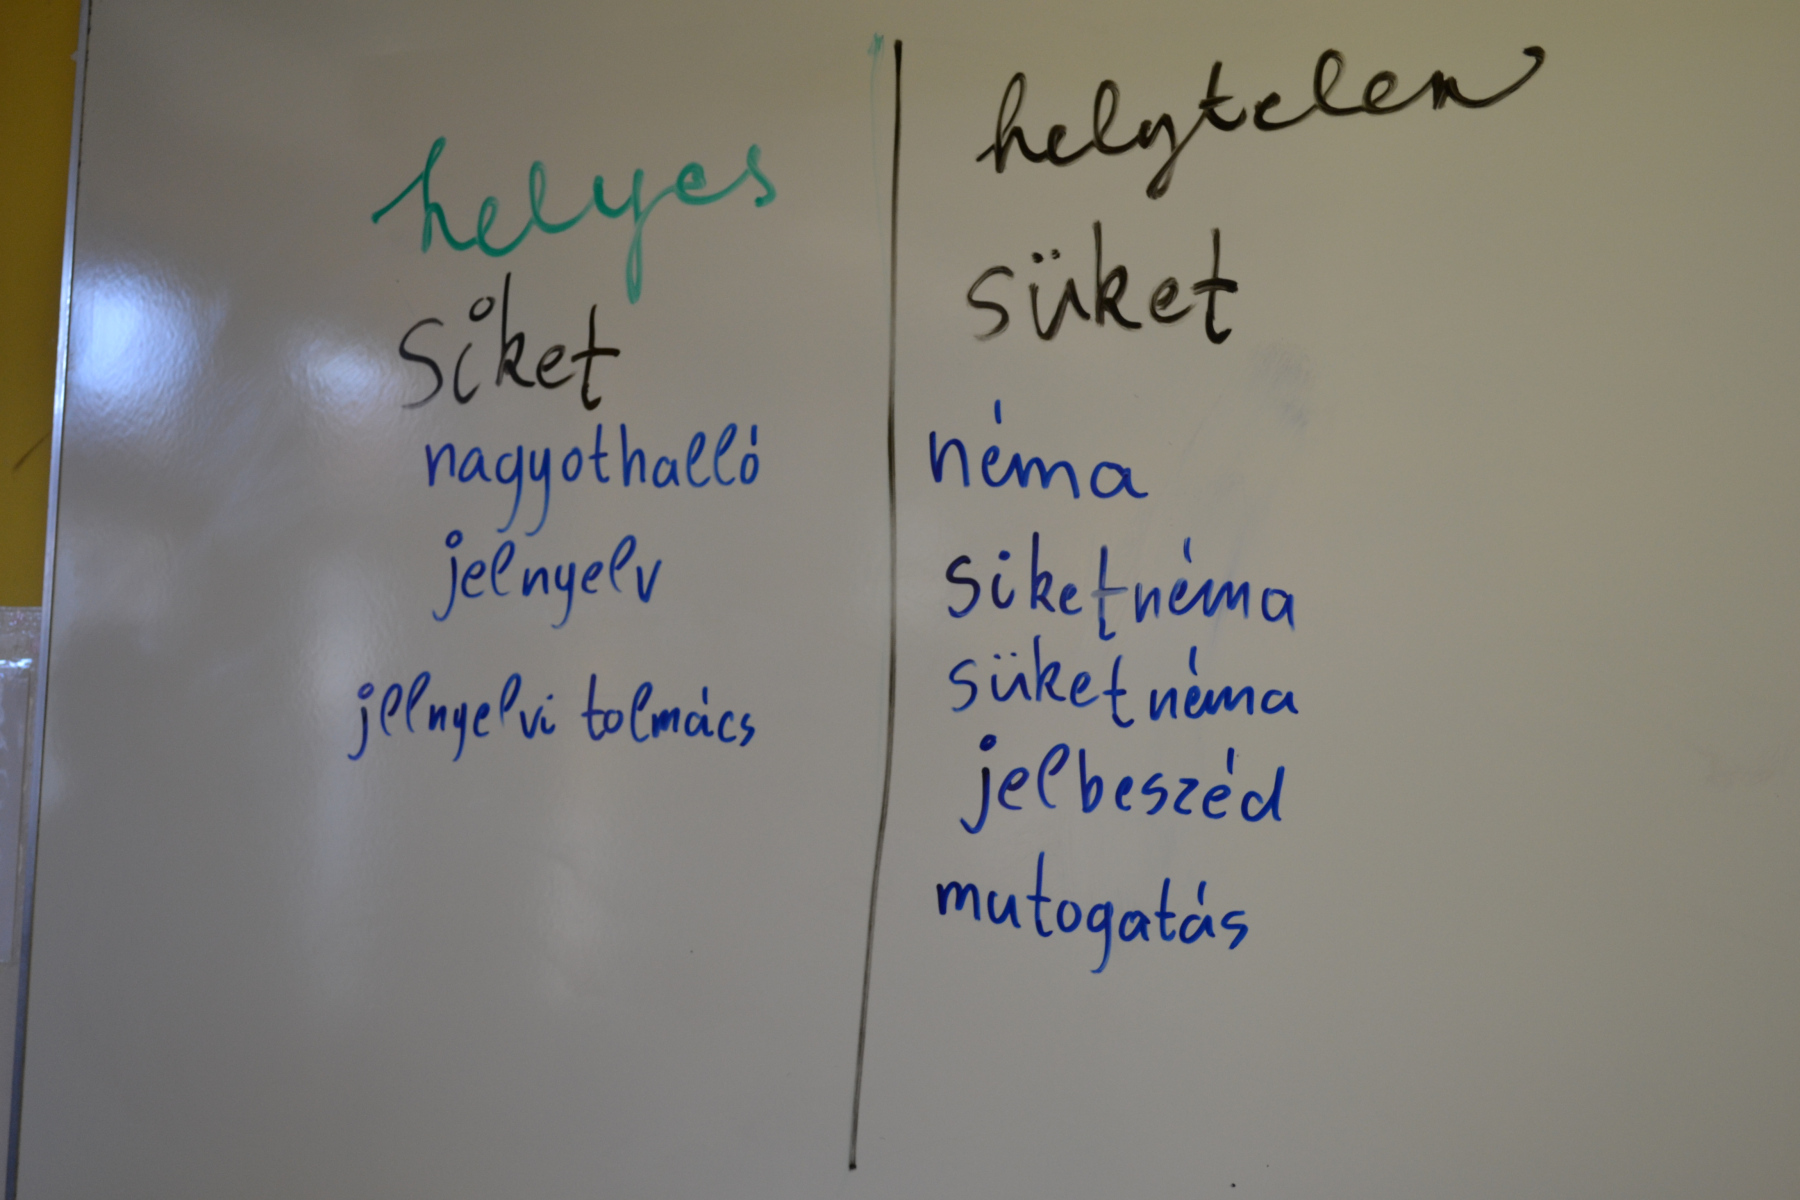 helyes
siket
nagyothalló
jelnyelv
jelnyelvi tolmács
helytelen
süket
néma
siketnéma
süketnéma
jelbeszéd
mutogatás